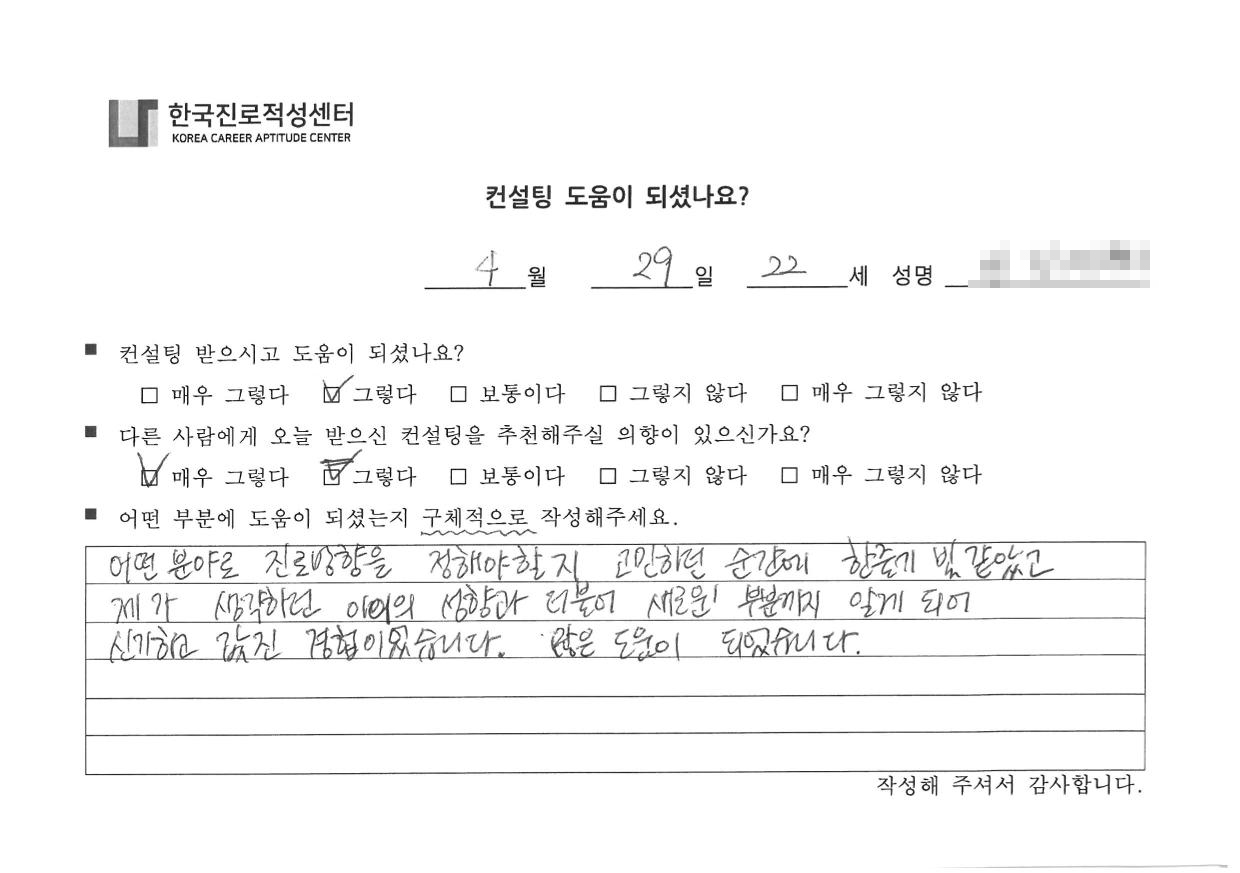 한국진로적성센터
KOREA CAREER APTITUDE CENTER
컨설팅 도움이 되셨나요?
4 월 29 일 22 세 성명
■ 컨설팅 받으시고 도움이 되셨나요?
□ 매우 그렇다 ☑ 그렇다 □ 보통이다 □ 그렇지 않다 □ 매우 그렇지 않다
■ 다른 사람에게 오늘 받으신 컨설팅을 추천해주실 의향이 있으신가요?
☑ 매우 그렇다 ☑ 그렇다 □ 보통이다 □ 그렇지 않다 □ 매우 그렇지 않다
■ 어떤 부분에 도움이 되셨는지 구체적으로 작성해주세요.
어떤 분야로 진로방향을 정해야할지 고민하던 순간에 한줄기 빛같았고
제가 생각하던 의 성향과 더불어 새로운 부분까지 알게 되어
신기하고 값진 경험이었습니다. 많은 도움이 되었습니다.
작성해 주셔서 감사합니다.